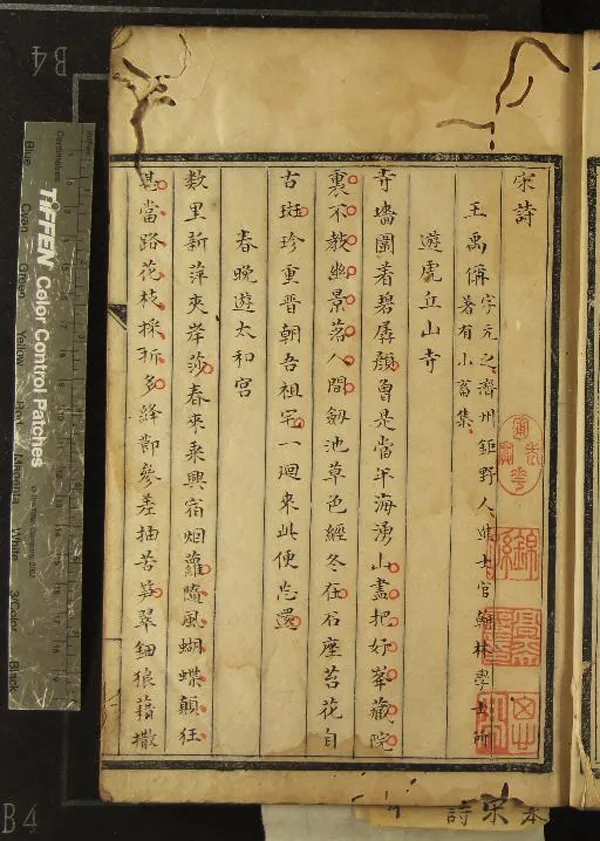 宋詩
王禹偁
字元之濟州鉅野人進士官翰林學士所
著有小畜集
遊虎丘山寺
寺墻圍着碧孱顏曾是當年海湧山盡把好峯藏院
裏不教幽景落人間劔池草色經冬在石座苔花自
古斑珍重晉朝吾祖宅一迴來此便忘還
春晚遊太和宮
数里新萍夾岸莎春來乘興宿烟蘿隨風蝴蝶顛狂
甚當路花枝採折多絳節參差抽苦笋翠鈿狼藉撒
本宋詩
B4
B4
TIFFEN Color Control Patches
Centimetres
Blue
Cyan
Green
Yellow
Red
Magenta
White
3/Color
Black